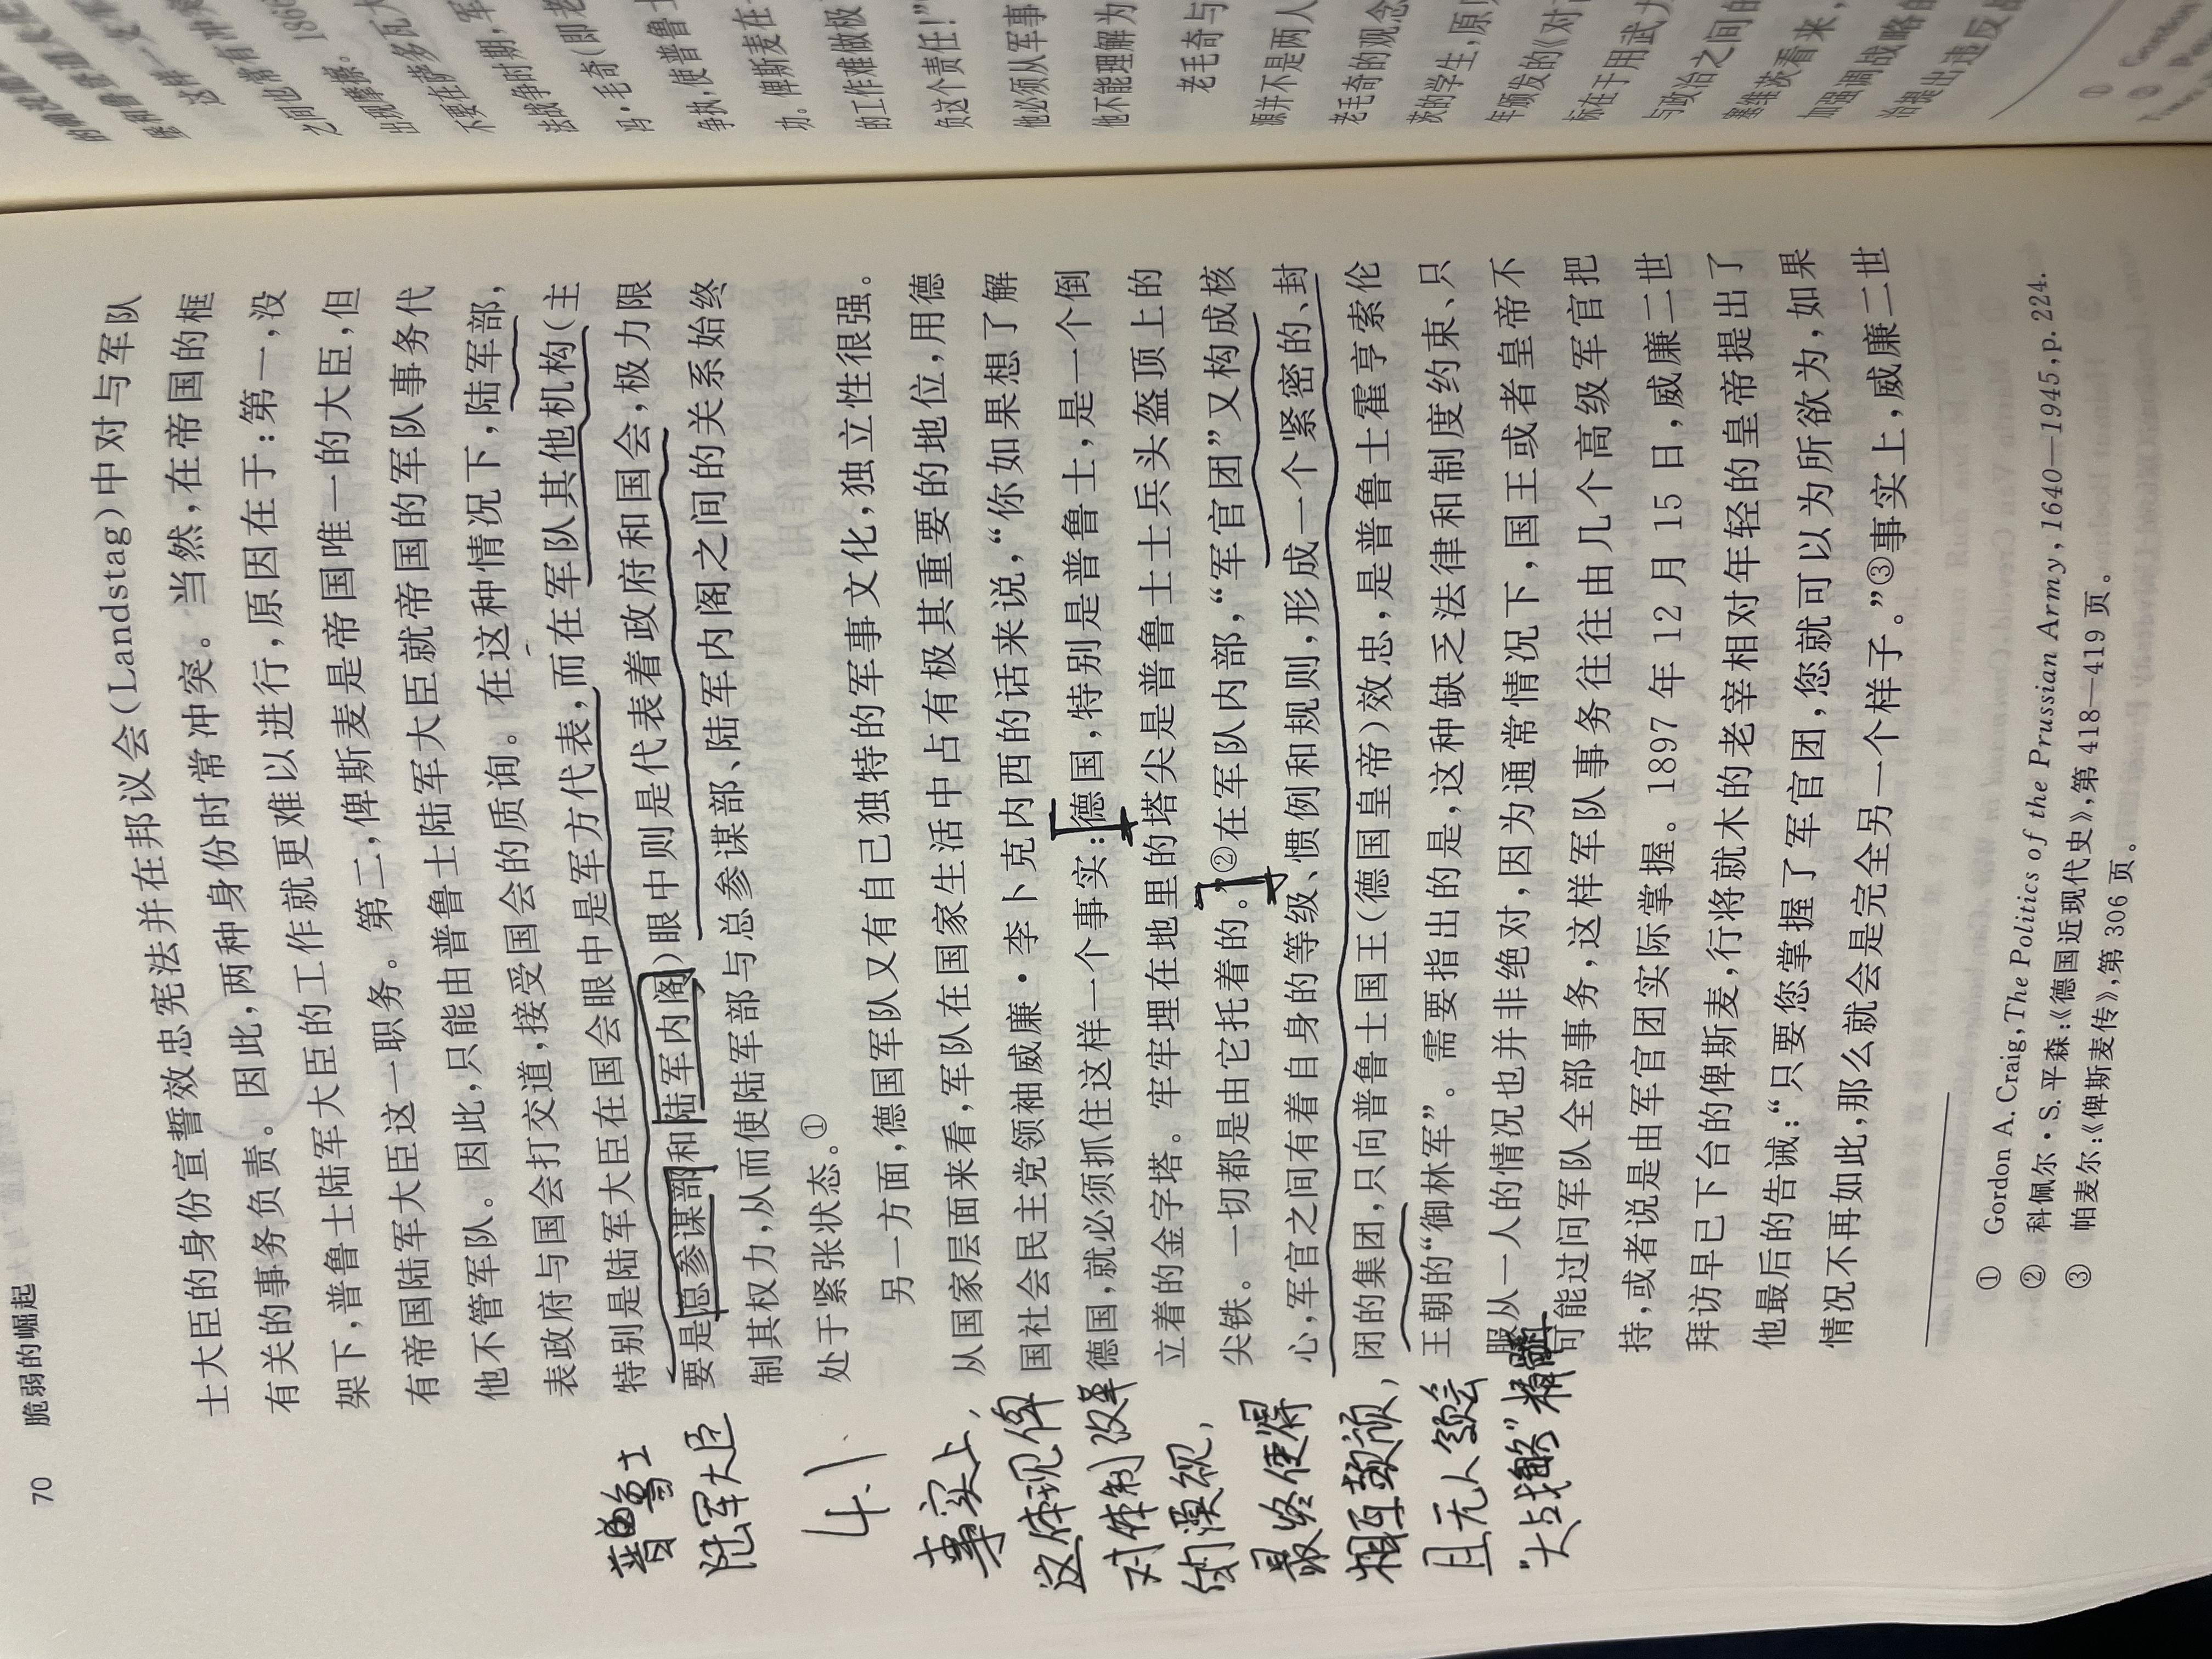 70 脆弱的崛起
士大臣的身份宣誓效忠宪法并在邦议会(Landstag)中对与军队
有关的事务负责。因此,两种身份时常冲突。当然,在帝国的框
架下,普鲁士陆军大臣的工作就更难以进行,原因在于:第一,没
有帝国陆军大臣这一职务。第二,俾斯麦是帝国唯一的大臣,但
他不管军队。因此,只能由普鲁士陆军大臣就帝国的军队事务代
表政府与国会打交道,接受国会的质询。在这种情况下,陆军部,
特别是陆军大臣在国会眼中是军方代表,而在军队其他机构(主
要是总参谋部和陆军内阁)眼中则是代表着政府和国会,极力限
制其权力,从而使陆军部与总参谋部、陆军内阁之间的关系始终
处于紧张状态。①
另一方面,德国军队又有自己独特的军事文化,独立性很强。
从国家层面来看,军队在国家生活中占有极其重要的地位,用德
国社会民主党领袖威廉·李卜克内西的话来说,“你如果想了解
德国,就必须抓住这样一个事实:德国,特别是普鲁士,是一个倒
立着的金字塔。牢牢埋在地里的塔尖是普鲁士士兵头盔顶上的
尖铁。一切都是由它托着的。”②在军队内部,“军官团”又构成核
心,军官之间有着自身的等级、惯例和规则,形成一个紧密的、封
闭的集团,只向普鲁士国王(德国皇帝)效忠,是普鲁士霍亨索伦
王朝的“御林军”。需要指出的是,这种缺乏法律和制度约束、只
服从一人的情况也并非绝对,因为通常情况下,国王或者皇帝不
可能过问军队全部事务,这样军队事务往往由几个高级军官把
持,或者说是由军官团实际掌握。1897 年 12 月 15 日,威廉二世
拜访早已下台的俾斯麦,行将就木的老宰相对年轻的皇帝提出了
他最后的告诫:“只要您掌握了军官团,您就可以为所欲为,如果
情况不再如此,那么就会是完全另一个样子。”③事实上,威廉二世
① Gordon A. Craig, The Politics of the Prussian Army, 1640—1945, p. 224.
② 科佩尔·S. 平森:《德国近现代史》,第 418—419 页。
③ 帕麦尔:《俾斯麦传》,第 306 页。
普鲁士
陆军大臣
4.1
事实上,
这体现俾
对体制改革
的漠视,
最终使得
相互颉颃,
且无人领会
“大战略”精髓
堡和鲁登道夫
这样一支军
之间也常有冲突
出现摩擦。1866
不要在萨多瓦
法战争时期,军
冯·毛奇(即老
争执,使普鲁士
功。俾斯麦在
的工作难做极
负这个责任!”
他必须从军事
他不能理解为
老毛奇与
源并不是两人
老毛奇的观念
茨的学生,原
年颁发的《对
标在于用武
与政治之间的
塞维茨看来,
加强调战略的
治提出违反